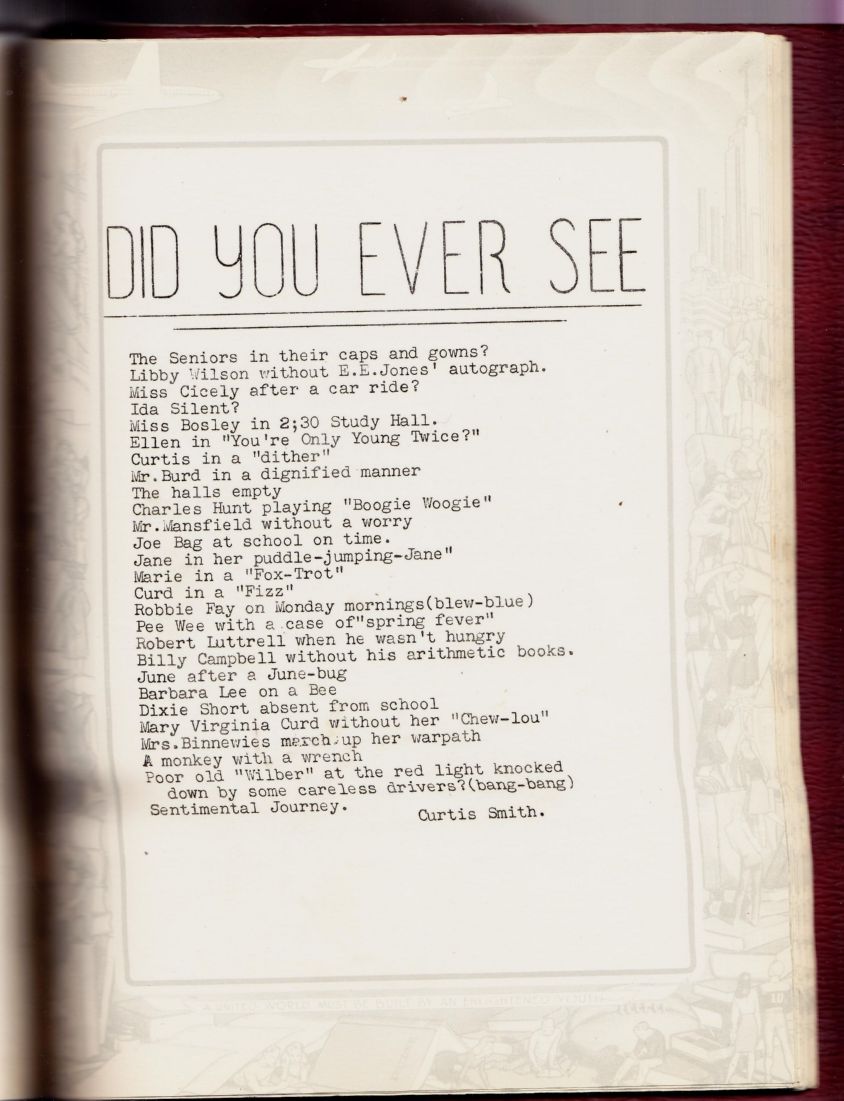 DID YOU EVER SEE
The Seniors in their caps and gowns?
Libby Wilson without E.E.Jones' autograph.
Miss Cicely after a car ride?
Ida Silent?
Miss Bosley in 2;30 Study Hall.
Ellen in "You're Only Young Twice?"
Curtis in a "dither"
Mr.Burd in a dignified manner
The halls empty
Charles Hunt playing "Boogie Woogie"
Mr.Mansfield without a worry
Joe Bag at school on time.
Jane in her puddle-jumping-Jane"
Marie in a "Fox-Trot"
Curd in a "Fizz"
Robbie Fay on Monday mornings(blew-blue)
Pee Wee with a case of"spring fever"
Robert Luttrell when he wasn't hungry
Billy Campbell without his arithmetic books.
June after a June-bug
Barbara Lee on a Bee
Dixie Short absent from school
Mary Virginia Curd without her "Chew-lou"
Mrs.Binnewies march up her warpath
A monkey with a wrench
Poor old "Wilber" at the red light knocked
down by some careless drivers?(bang-bang)
Sentimental Journey.
Curtis Smith.
A UNITED WORLD MUST BE BUILT BY AN ENLIGHTENED YOUTH